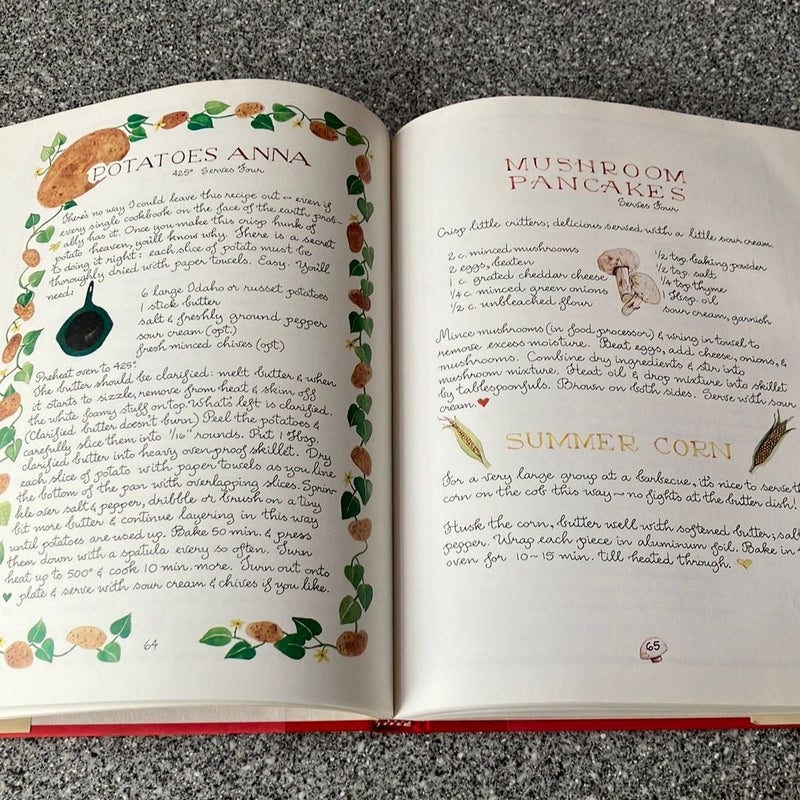 POTATOES ANNA
425° Serves Four
There's no way I could leave this recipe out ~ even if
every single cookbook on the face of the earth prob-
ably has it. Once you make this crisp hunk of
potato heaven, you'll know why. There is a secret
to doing it right: each slice of potato must be
thoroughly dried with paper towels. Easy. You'll
need:
6 large Idaho or russet potatoes
1 stick butter
salt & freshly ground pepper
sour cream (opt.)
fresh minced chives (opt.)
Preheat oven to 425°.
The butter should be clarified: melt butter & when
it starts to sizzle, remove from heat & skim off
the white foamy stuff on top. What's left is clarified.
(Clarified butter doesn't burn.) Peel the potatoes &
carefully slice them into 1/16" rounds. Put 1 Tbsp.
clarified butter into heavy ovenproof skillet. Dry
each slice of potato with paper towels as you line
the bottom of the pan with overlapping slices. Sprin-
kle over salt & pepper, dribble or brush on a tiny
bit more butter & continue layering in this way
until potatoes are used up. Bake 50 min. & press
them down with a spatula every so often. Turn
heat up to 500° & cook 10 min. more. Turn out onto
plate & serve with sour cream & chives if you like.
64
MUSHROOM
PANCAKES
Serves Four
Crisp little critters; delicious served with a little sour cream.
2 c. minced mushrooms
2 eggs, beaten
1 c. grated cheddar cheese
1/4 c. minced green onions
1/2 c. unbleached flour
1/2 tsp. baking powder
1/2 tsp. salt
1/4 tsp. thyme
1 Tbsp. oil
sour cream, garnish
Mince mushrooms (in food processor) & wring in towel to
remove excess moisture. Beat eggs, add cheese, onions, &
mushrooms. Combine dry ingredients & stir into
mushroom mixture. Heat oil & drop mixture into skillet
by tablespoonfuls. Brown on both sides. Serve with sour
cream.
SUMMER CORN
For a very large group at a barbecue, it's nice to serve
corn on the cob this way ~ no fights at the butter dish!
Husk the corn, butter well with softened butter; salt
pepper. Wrap each piece in aluminum foil. Bake in
oven for 10~15 min. till heated through.
65